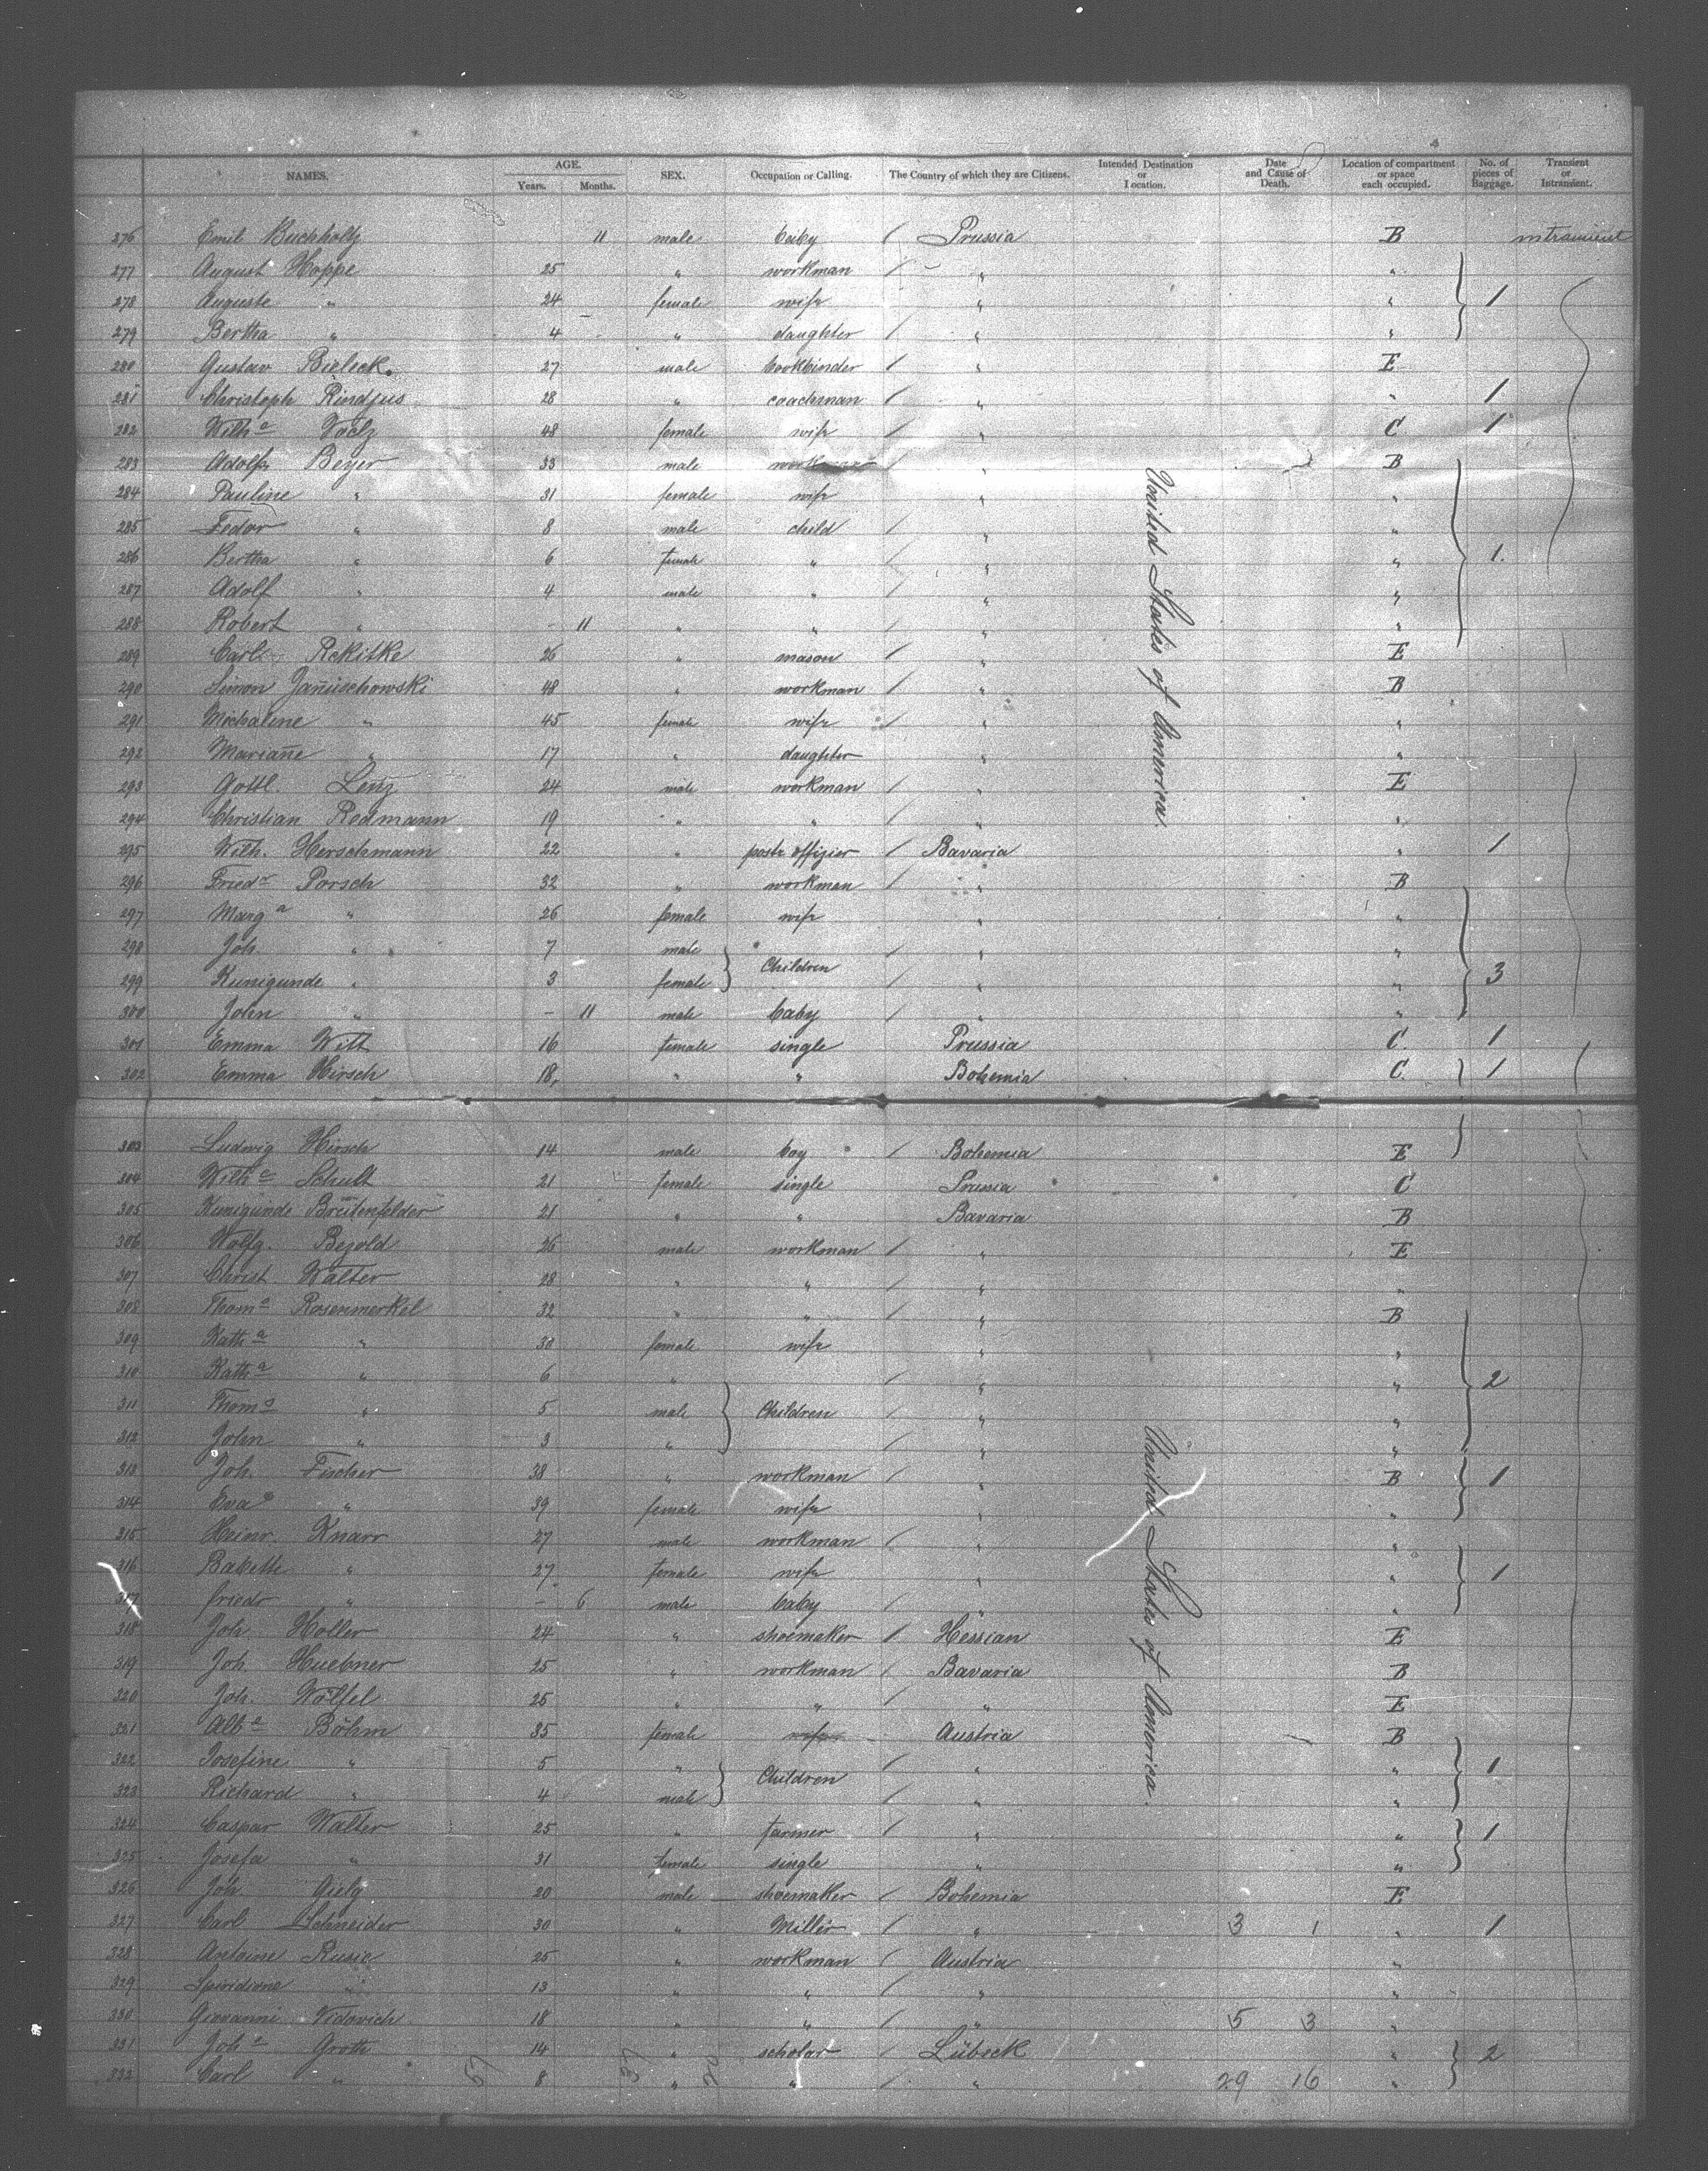 NAMES. AGE. Years. Months. SEX. Occupation or Calling. The Country of which they are Citizens. Intended Destination or Location. Date and Cause of Death. Location of compartment or space each occupied. No. of pieces of Baggage. Transient or Intransient.
276 Emil Buchholtz 11 male baby / Prussia B intransient
277 August Hoppe 25 " workman / " "
278 Auguste " 24 female wife " " 1
279 Bertha " 4 " daughter / " "
280 Gustav Bieleck. 27 male bookbinder / " E
281 Christoph Rindjus 28 " coachman / " " 1
282 Wilh.a Voelz 48 female wife / " C 1
283 Adolf Beyer 33 male workman / " B
284 Pauline " 31 female wife " "
285 Fedor " 8 male child / " "
286 Bertha " 6 female " / " " 1.
287 Adolf " 4 male " / " "
288 Robert " - 11 " " / " "
289 Carl Rekitke 26 " mason / " E
290 Simon Janŭschowski 48 " workman / " B
291 Michaline " 45 female wife / " "
292 Mariañe " 17 " daughter " "
293 Gottl. Lenz 24 male workman / " E
294 Christian Redmann 19 " " / " "
295 Wilh. Herschmann 22 " posts offizier / Bavaria " 1
296 Friedr Porsch 32 " workman / " B
297 Marg a " 26 female wife " "
298 Joh. " 7 male / " "
299 Kunigunde " 3 female } Children / " " 3
300 John " - 11 male baby / " "
301 Emma Witt 16 female single Prussia C. 1
302 Emma Hirsch 18, " " Bohemia C. 1
United States of America.
303 Ludwig Hirsch 14 male boy / Bohemia E
304 Wilh a Schult 21 female single Prussia C
305 Kunigunde Breitenfelder 21 " " Bavaria B
306 Wolfg. Bezold 26 male workman / " E
307 Christ Walter 28 " " / " "
308 Thom s Rosenmerkel 32 " " / " B
309 Kath a " 30 female wife " "
310 Kath a " 6 " / " " 2
311 Thom s " 5 male } Children / " "
312 John " 3 " / " "
313 Joh. Fischer 38 " workman / " B 1
314 Eva " 39 female wife " "
315 Heinr. Knarr 27 male workman / " "
316 Babette " 27 female wife " " 1
317 friedr " - 6 male baby / " "
318 Joh. Holler 24 " shoemaker / Hessian E
319 Joh. Huebner 25 " workman / Bavaria B
320 Joh. Wölfel 25 " " / " E
321 Alb a Böhm 35 female wife Austria B
322 Josefine " 5 " / " " 1
323 Richard " 4 male } Children / " "
324 Caspar Walter 25 " farmer / " " 1
325 Josefa " 31 female single " "
326 Joh. Gielg 20 male shoemaker / Bohemia E
327 Carl Schneider 30 " Miller / " 3 1 " 1
328 Antoine Rusic 25 " workman / Austria "
329 Spiridione " 13 " " / " "
330 Giovanni Vidovich 18 " " / " 5 3 "
331 Joh s Groth 14 " scholar / Lübeck " 2
332 Carl " 8 " " / " 29 16 "
United States of America.